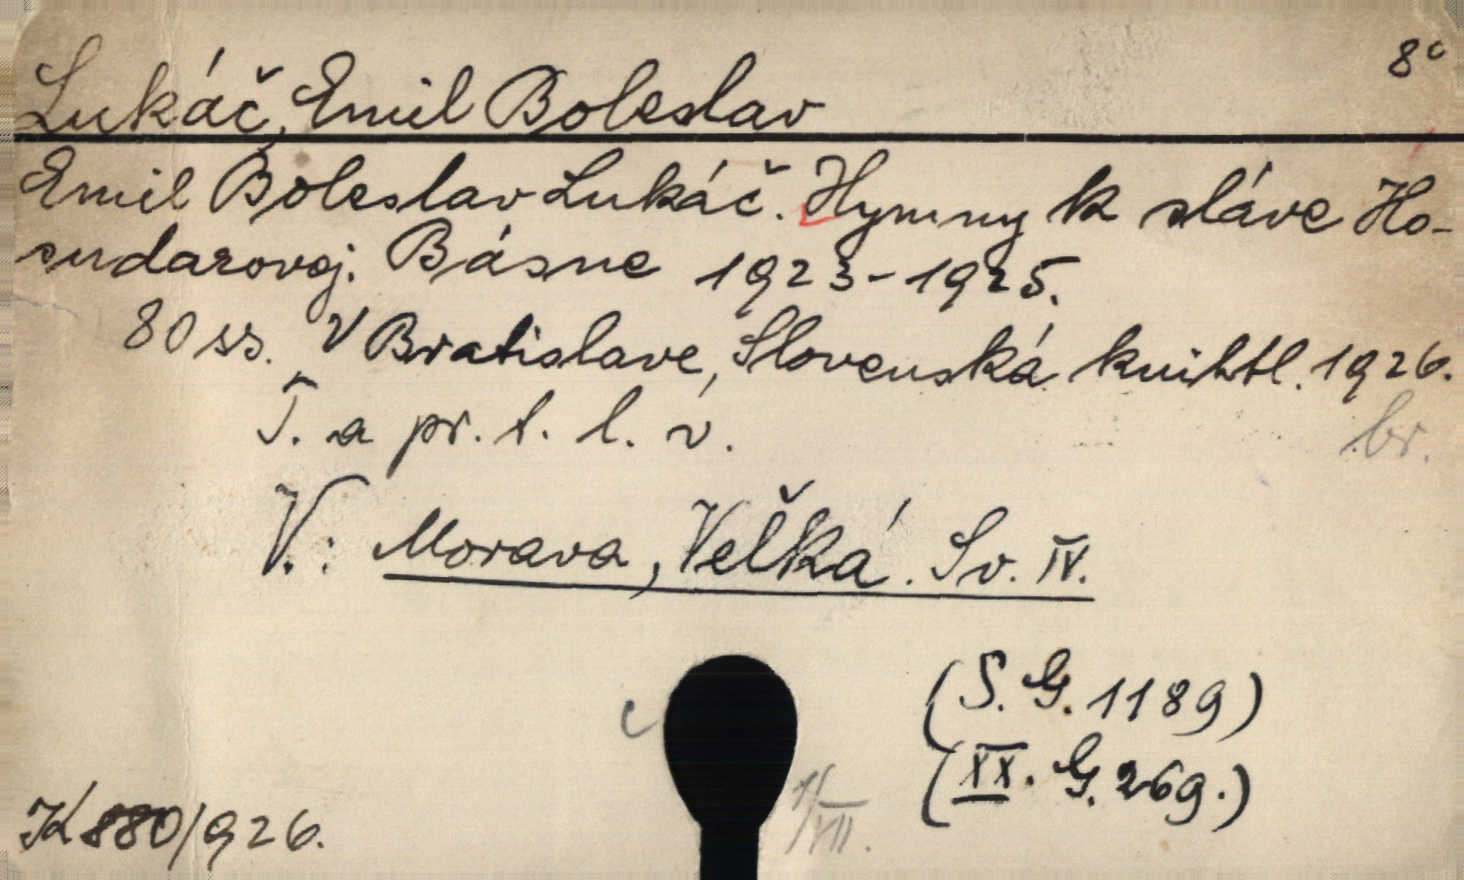 8°
Lukáč, Emil Boleslav
Emil Boleslav Lukáč. Hymny k sláve Ho-
sudarovej. Básne 1923-1925.
80 ss. V Bratislave, Slovenská knihtl. 1926.
T. a pr. t. l. v.
br.
V.: Morava, Veľká. Sv. IV.
(S. G. 1189)
c
(XX. G. 269.)
1/VII.
K 880/926.